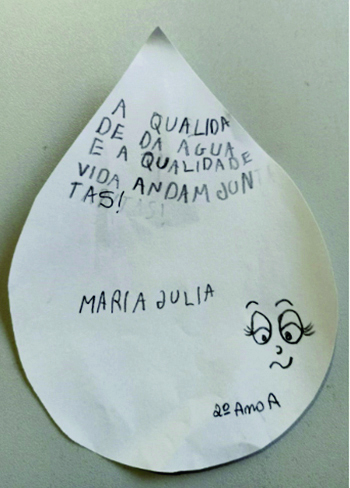 A QUALIDA
DE DA AGUA
E A QUALIDADE
VIDA ANDAM JUN
TAS!
MARIA JULIA
2º Ano A